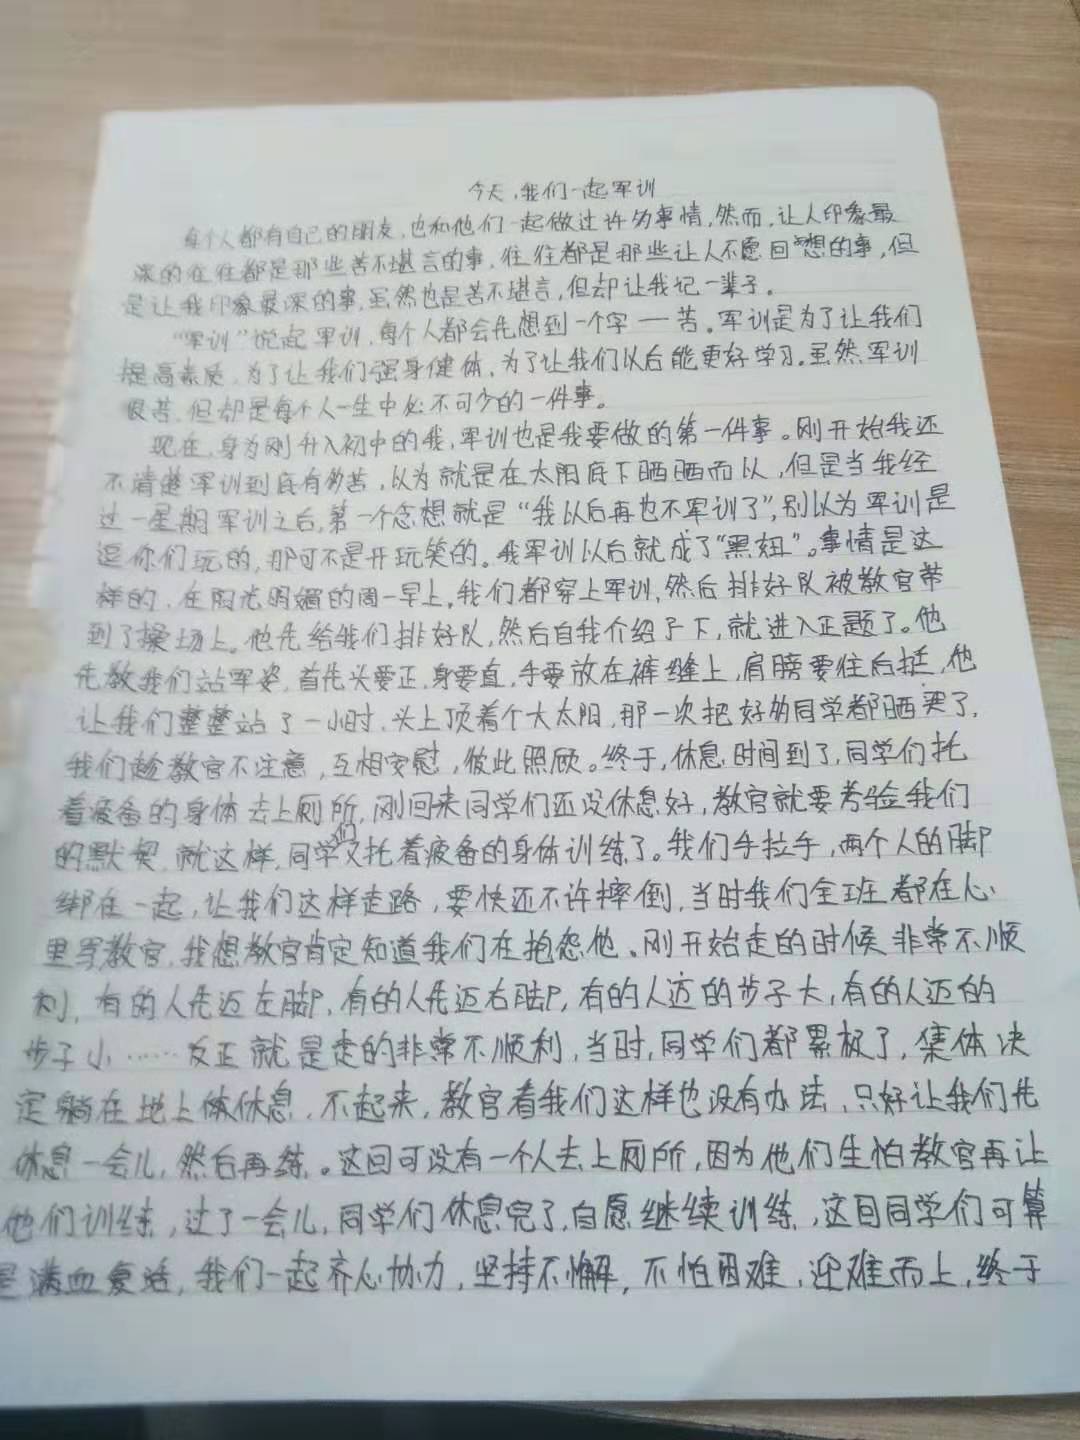 今天,我们一起军训
每个人都有自己的朋友,也和他们一起做过许多事情,然而,让人印象最
深的往往都是那些苦不堪言的事,往往都是那些让人不愿回想的事,但
是让我印象最深的事,虽然也是苦不堪言,但却让我记一辈子。
“军训”说起军训,每个人都会先想到一个字——苦。军训是为了让我们
提高素质,为了让我们强身健体,为了让我们以后能更好学习。虽然军训
很苦,但却是每个人一生中必不可少的一件事。
现在,身为刚升入初中的我,军训也是我要做的第一件事。刚开始我还
不清楚军训到底有多苦,以为就是在太阳底下晒晒而以,但是当我经
过一星期军训之后,第一个念想就是“我以后再也不军训了”,别以为军训是
逗你们玩的,那可不是开玩笑的。我军训以后就成了“黑妞”。事情是这
样的,在阳光明媚的周一早上,我们都穿上军训,然后排好队被教官带
到了操场上。他先给我们排好队,然后自我介绍了下,就进入正题了。他
先教我们站军姿,首先头要正,身要直,手要放在裤缝上,肩膀要往后挺,他
让我们整整站了一小时,头上顶着个大太阳,那一次把好多同学都晒哭了,
我们趁教官不注意,互相安慰,彼此照顾。终于,休息时间到了,同学们托
着疲备的身体去上厕所,刚回来同学们还没休息好,教官就要考验我们
的默契,就这样,同学们又托着疲备的身体训练了。我们手拉手,两个人的脚
绑在一起,让我们这样走路,要快还不许摔倒,当时我们全班都在心
里骂教官,我想教官肯定知道我们在抱怨他。刚开始走的时候非常不顺
利,有的人先迈左脚,有的人先迈右脚,有的人迈的步子大,有的人迈的
步子小……反正就是走的非常不顺利,当时,同学们都累极了,集体决
定躺在地上休息,不起来,教官看我们这样也没有办法,只好让我们先
休息一会儿,然后再练。这回可没有一个人去上厕所,因为他们生怕教官再让
他们训练,过了一会儿,同学们休息完了,自愿继续训练,这回同学们可算
是满血复活,我们一起齐心协力,坚持不懈,不怕困难,迎难而上,终于